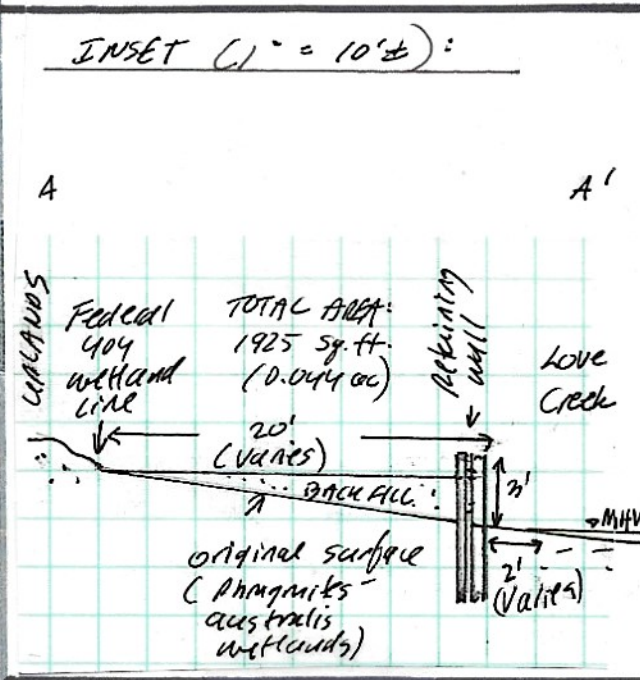 INSET (1" = 10'±):
A
A'
UPLANDS
Federal
404
wetland
line
TOTAL AREA:
1925 sq.ft.
(0.044 ac)
Retaining
wall
Love
Creek
20'
(varies)
BACKFILL
3'
MHW
2'
(varies)
original surface
(Phragmites
australis
wetlands)